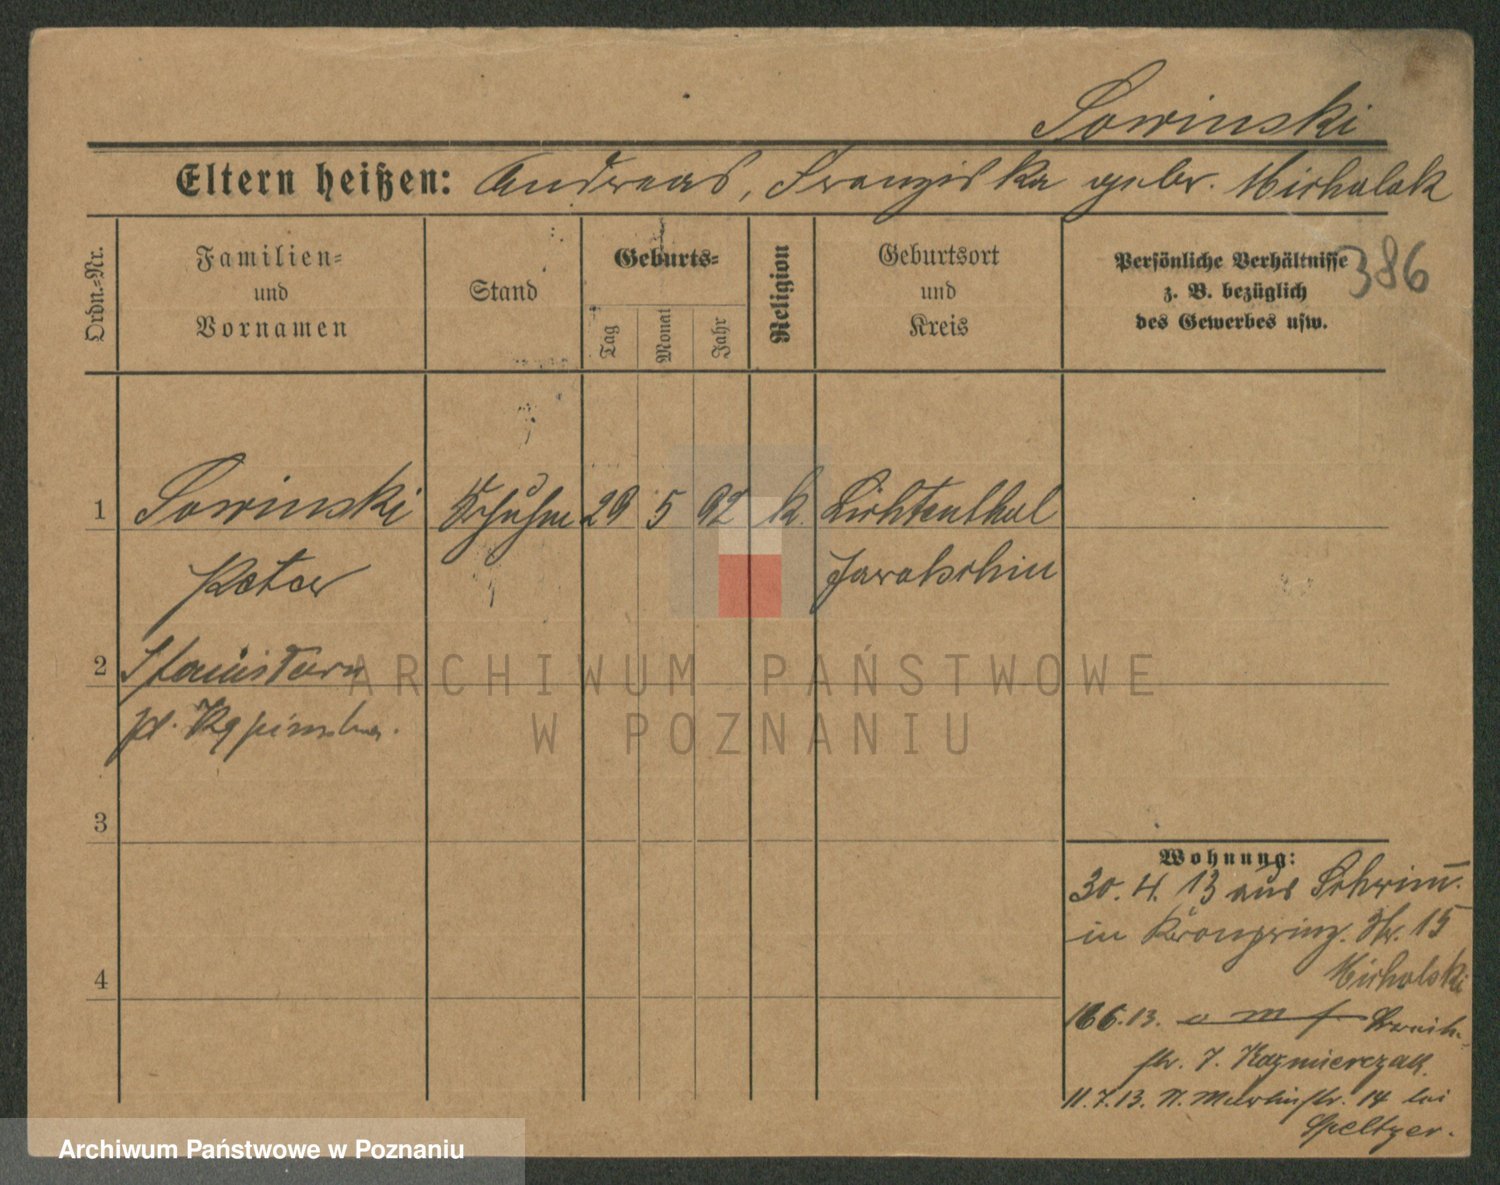 Sowinski
Eltern heißen: Andreas, Franziska gebr. Michalak
386
Ordn.-Nr.
Familien-
und
Vornamen
Stand
Geburts-
Tag
Monat
Jahr
Religion
Geburtsort
und
Kreis
Persönliche Verhältnisse
z. B. bezüglich
des Gewerbes usw.
1 Sowinski Schuhm 29 5 92 k. Lichtenthal
Peter Jarotschin
2
3
4
Wohnung:
30. 4. 13 aus Schrimm.
in Kronprinz. Str. 15
Michalski
16 6. 13.
str. 7. Kazmierczak.
11. 7. 13. 14 bei
Speltzer.
ARCHIWUM PAŃSTWOWE
W POZNANIU
Archiwum Państwowe w Poznaniu